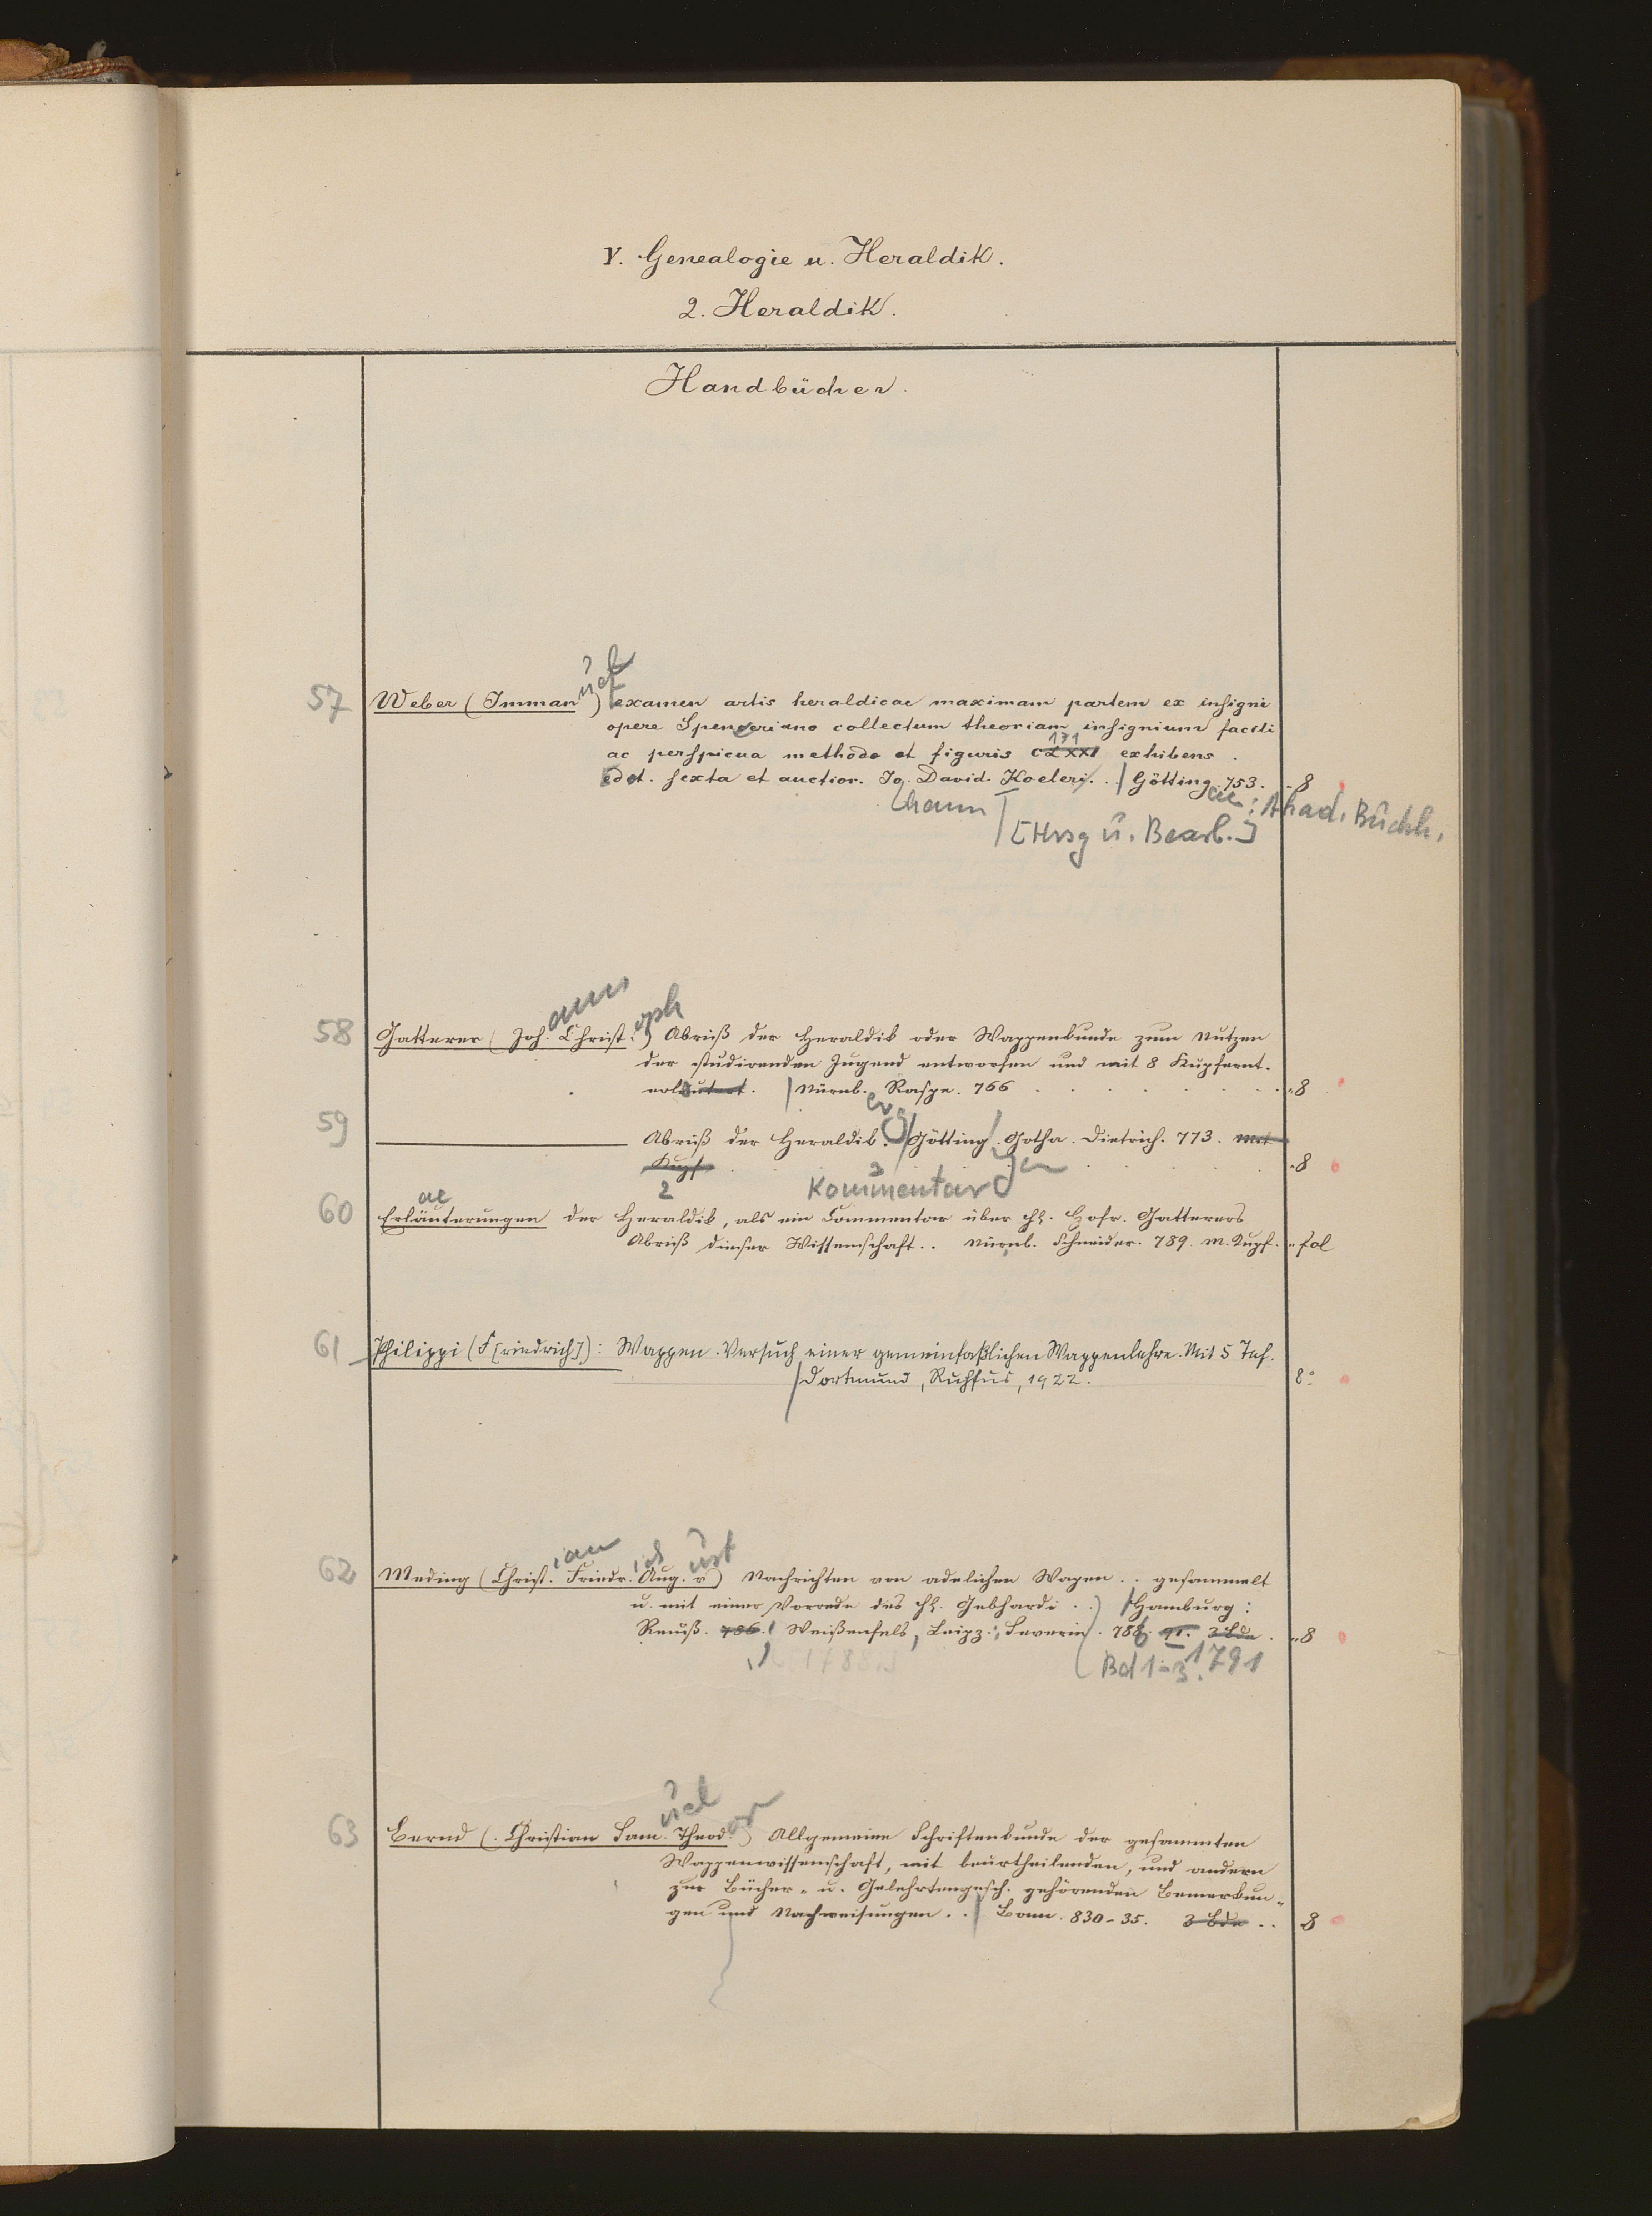 V. Genealogie u. Heraldik.
2. Heraldik.
Handbücher.
57 Weber (Immanuel) Examen artis heraldicae maximam partem ex insigni
opere Speneriano collectum theoriam insignium facili
131
ac perspicua methodo et figuris CLXXXI exhibens .
Edit. sexta et auctior. Jo. David. Koeleri. .. / Götting. 753. .. 8
hann [Hrsg u. Bearb.] ae: Akad. Buchh.
58 Gatterer (Joh.annes Christ.oph) Abriß der Heraldik oder Wappenkunde zum Nutzen
der studirenden Jugend entworfen und mit 8 Kupfernt.
erläutert. / Nürnb.erg Raspe. 766 . . . . . . „8
59 ——— Abriß der Heraldik. / Götting.en Gotha. Dietrich. 773. mit
Kupf. . . . . . „8
2 3 Kommentar
60 Erläuterungen der Heraldik, als ein Commentar über Hr. Hofr. Gatterers
ae
Abriß dieser Wissenschaft .. Nürnb. Schneider. 789. m. Kupf. „ fol
61 Philippi (F[riedrich]): Wappen. Versuch einer gemeinfaßlichen Wappenlehre. Mit 5 Taf.
/ Dortmund, Ruhfus, 1922. 8°
62 Meding (Christ.ian Friedr.ich Aug.ust v.) Nachrichten von adelichen Wapen .. gesammelt
u. mit einer Vorrede des Hr. Gebhardi . . / Hamburg:
Reuß. 786.; Weißenfels, Leipz.: Severin. 788. 91. 3 Bde . „8
Bd 1-3. 1791
63 Bernd (Christian Sam.uel Theod.or) Allgemeine Schriftenkunde der gesammten
Wappenwissenschaft, mit beurtheilenden, und andern
zur Bücher- u. Gelehrtengesch. gehörenden Bemerkun-
gen und Nachweisungen . . / Bonn. 830-35. 3 Bde .. 8